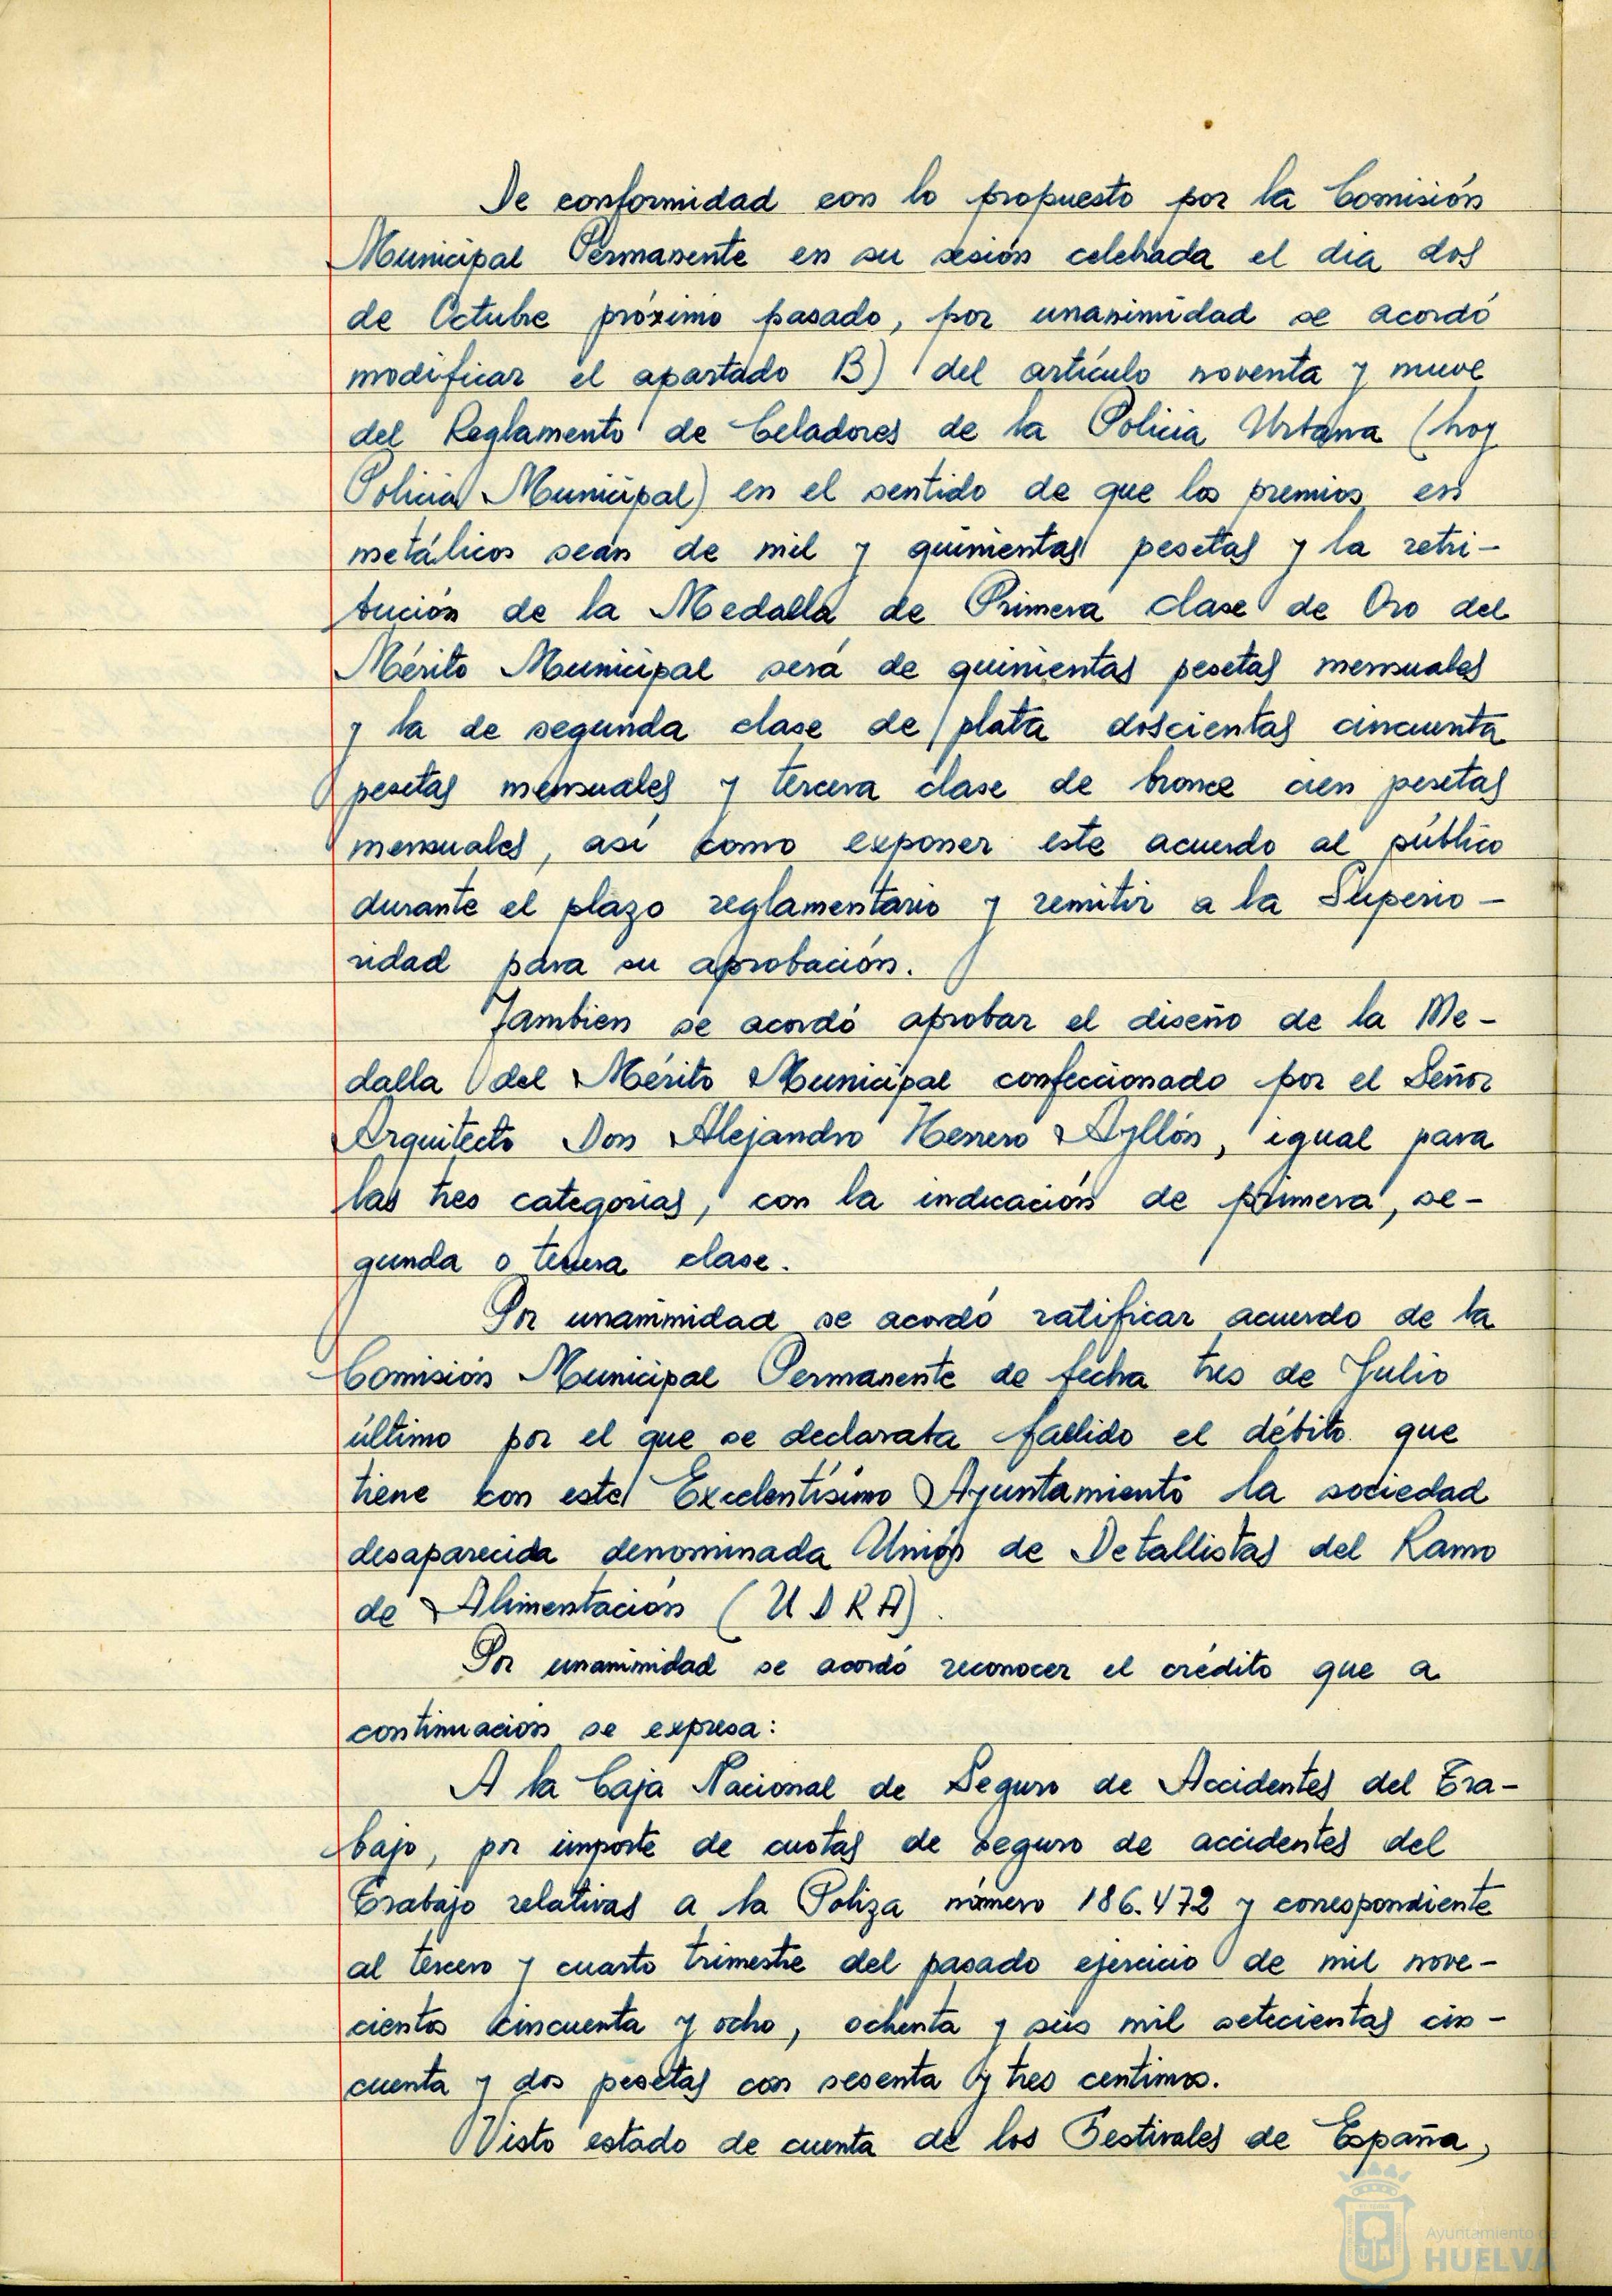 De conformidad con lo propuesto por la Comisión
Municipal Permanente en su sesión celebrada el dia dos
de Octubre próximo pasado, por unanimidad se acordó
modificar el apartado B) del artículo noventa y nueve
del Reglamento de Celadores de la Policia Urbana (hoy
Policia Municipal) en el sentido de que los premios en
metálicos sean de mil y quinientas pesetas y la retri-
bución de la Medalla de Primera clase de Oro del
Mérito Municipal será de quinientas pesetas mensuales
y la de segunda clase de plata doscientas cincuenta
pesetas mensuales y tercera clase de bronce cien pesetas
mensuales, así como exponer este acuerdo al público
durante el plazo reglamentario y remitir a la Superio-
ridad para su aprobación.
Tambien se acordó aprobar el diseño de la Me-
dalla del Mérito Municipal confeccionado por el Señor
Arquitecto Don Alejandro Herrero Ayllón, igual para
las tres categorias, con la indicación de primera, se-
gunda o tercera clase.
Por unanimidad se acordó ratificar acuerdo de la
Comisión Municipal Permanente de fecha tres de Julio
último por el que se declaraba fallido el débito que
tiene con este Excelentísimo Ayuntamiento la sociedad
desaparecida denominada Unión de Detallistas del Ramo
de Alimentación (U D R A).
Por unanimidad se acordó reconocer el crédito que a
continuación se expresa:
A la Caja Nacional de Seguro de Accidentes del Tra-
bajo, por importe de cuotas de seguro de accidentes del
Trabajo relativas a la Poliza número 186.472 y correspondiente
al tercero y cuarto trimestre del pasado ejercicio de mil nove-
cientos cincuenta y ocho, ochenta y seis mil setecientas cin-
cuenta y dos pesetas con sesenta y tres centimos.
Visto estado de cuenta de los Festivales de España,
Ayuntamiento de
HUELVA